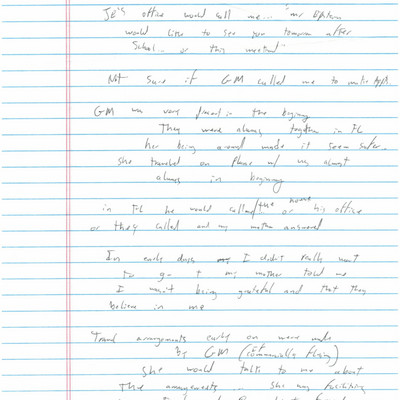 JE's office would call me... "mr Epstein
would like to see you tomorrow after
school... or this weekend"
Not sure if GM called me to make appt.
GM was very present in the beginning
They were always together in FL
her being around made it seem safer..
she traveled on plane w/ us almost
always in beginning
in FL he would call the house or his office
or they called and my mother answered
In early days my I didn't really want
to go + my mother told me
I wasn't being grateful and that they
believe in me
Travel arrangements early on were made
By GM (+ commercially flying)
She would talk to me about
The arrangements ... she was facilitating